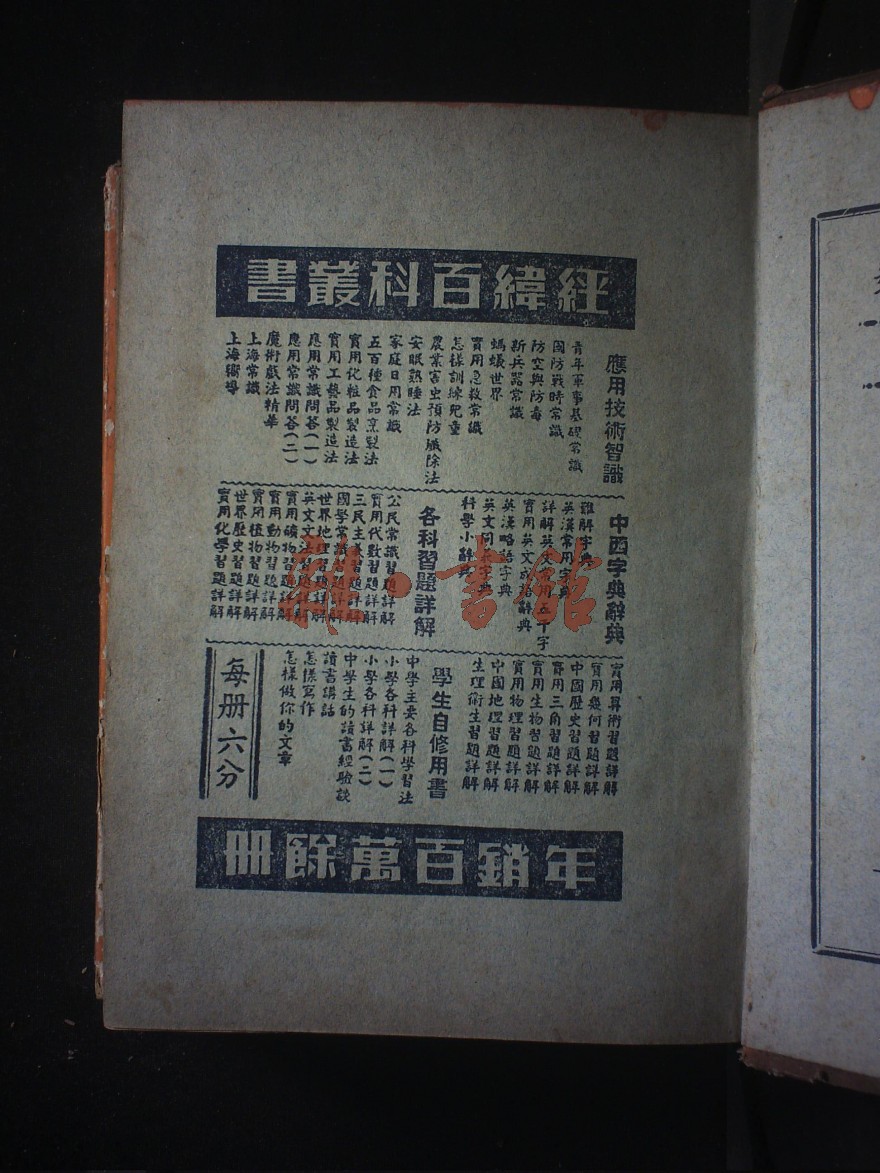 經緯百科叢書
應用技術智識
青年軍事基礎常識
國防戰時常識
防空與防毒
新兵器常識
螞蟻世界
實用急救常識
怎樣訓練兒童
農業害虫預防殲除法
安眠熟睡法
家庭日用常識
五百種食品烹製法
實用化粧品製造法
實用工藝品製造法
應用常識問答(一)
應用常識問答(二)
魔術戲法精華
上海常識
上海嚮導
中西字典辭典
難解字典
英漢常用字典
詳解英文 用五千字
實用英文成語辭典
英漢略語字典
英文同義字典
科學小辭典
各科習題詳解
公民常識習題詳解
實用代數習題詳解
三民主義習題詳解
國學常識習題詳解
世界地理習題詳解
英文文法習題詳解
實用礦物習題詳解
實用動物習題詳解
實用植物習題詳解
世界歷史習題詳解
實用化學習題詳解
實用算術習題詳解
實用幾何習題詳解
中國歷史習題詳解
實用三角習題詳解
實用生物習題詳解
實用物理習題詳解
中國地理習題詳解
生理衛生習題詳解
學生自修用書
中學主要各科學習法
小學各科詳解(一)
小學各科詳解(二)
中學生的讀書經驗談
讀書講話
怎樣寫作
怎樣做你的文章
每册六分
年銷百萬餘冊